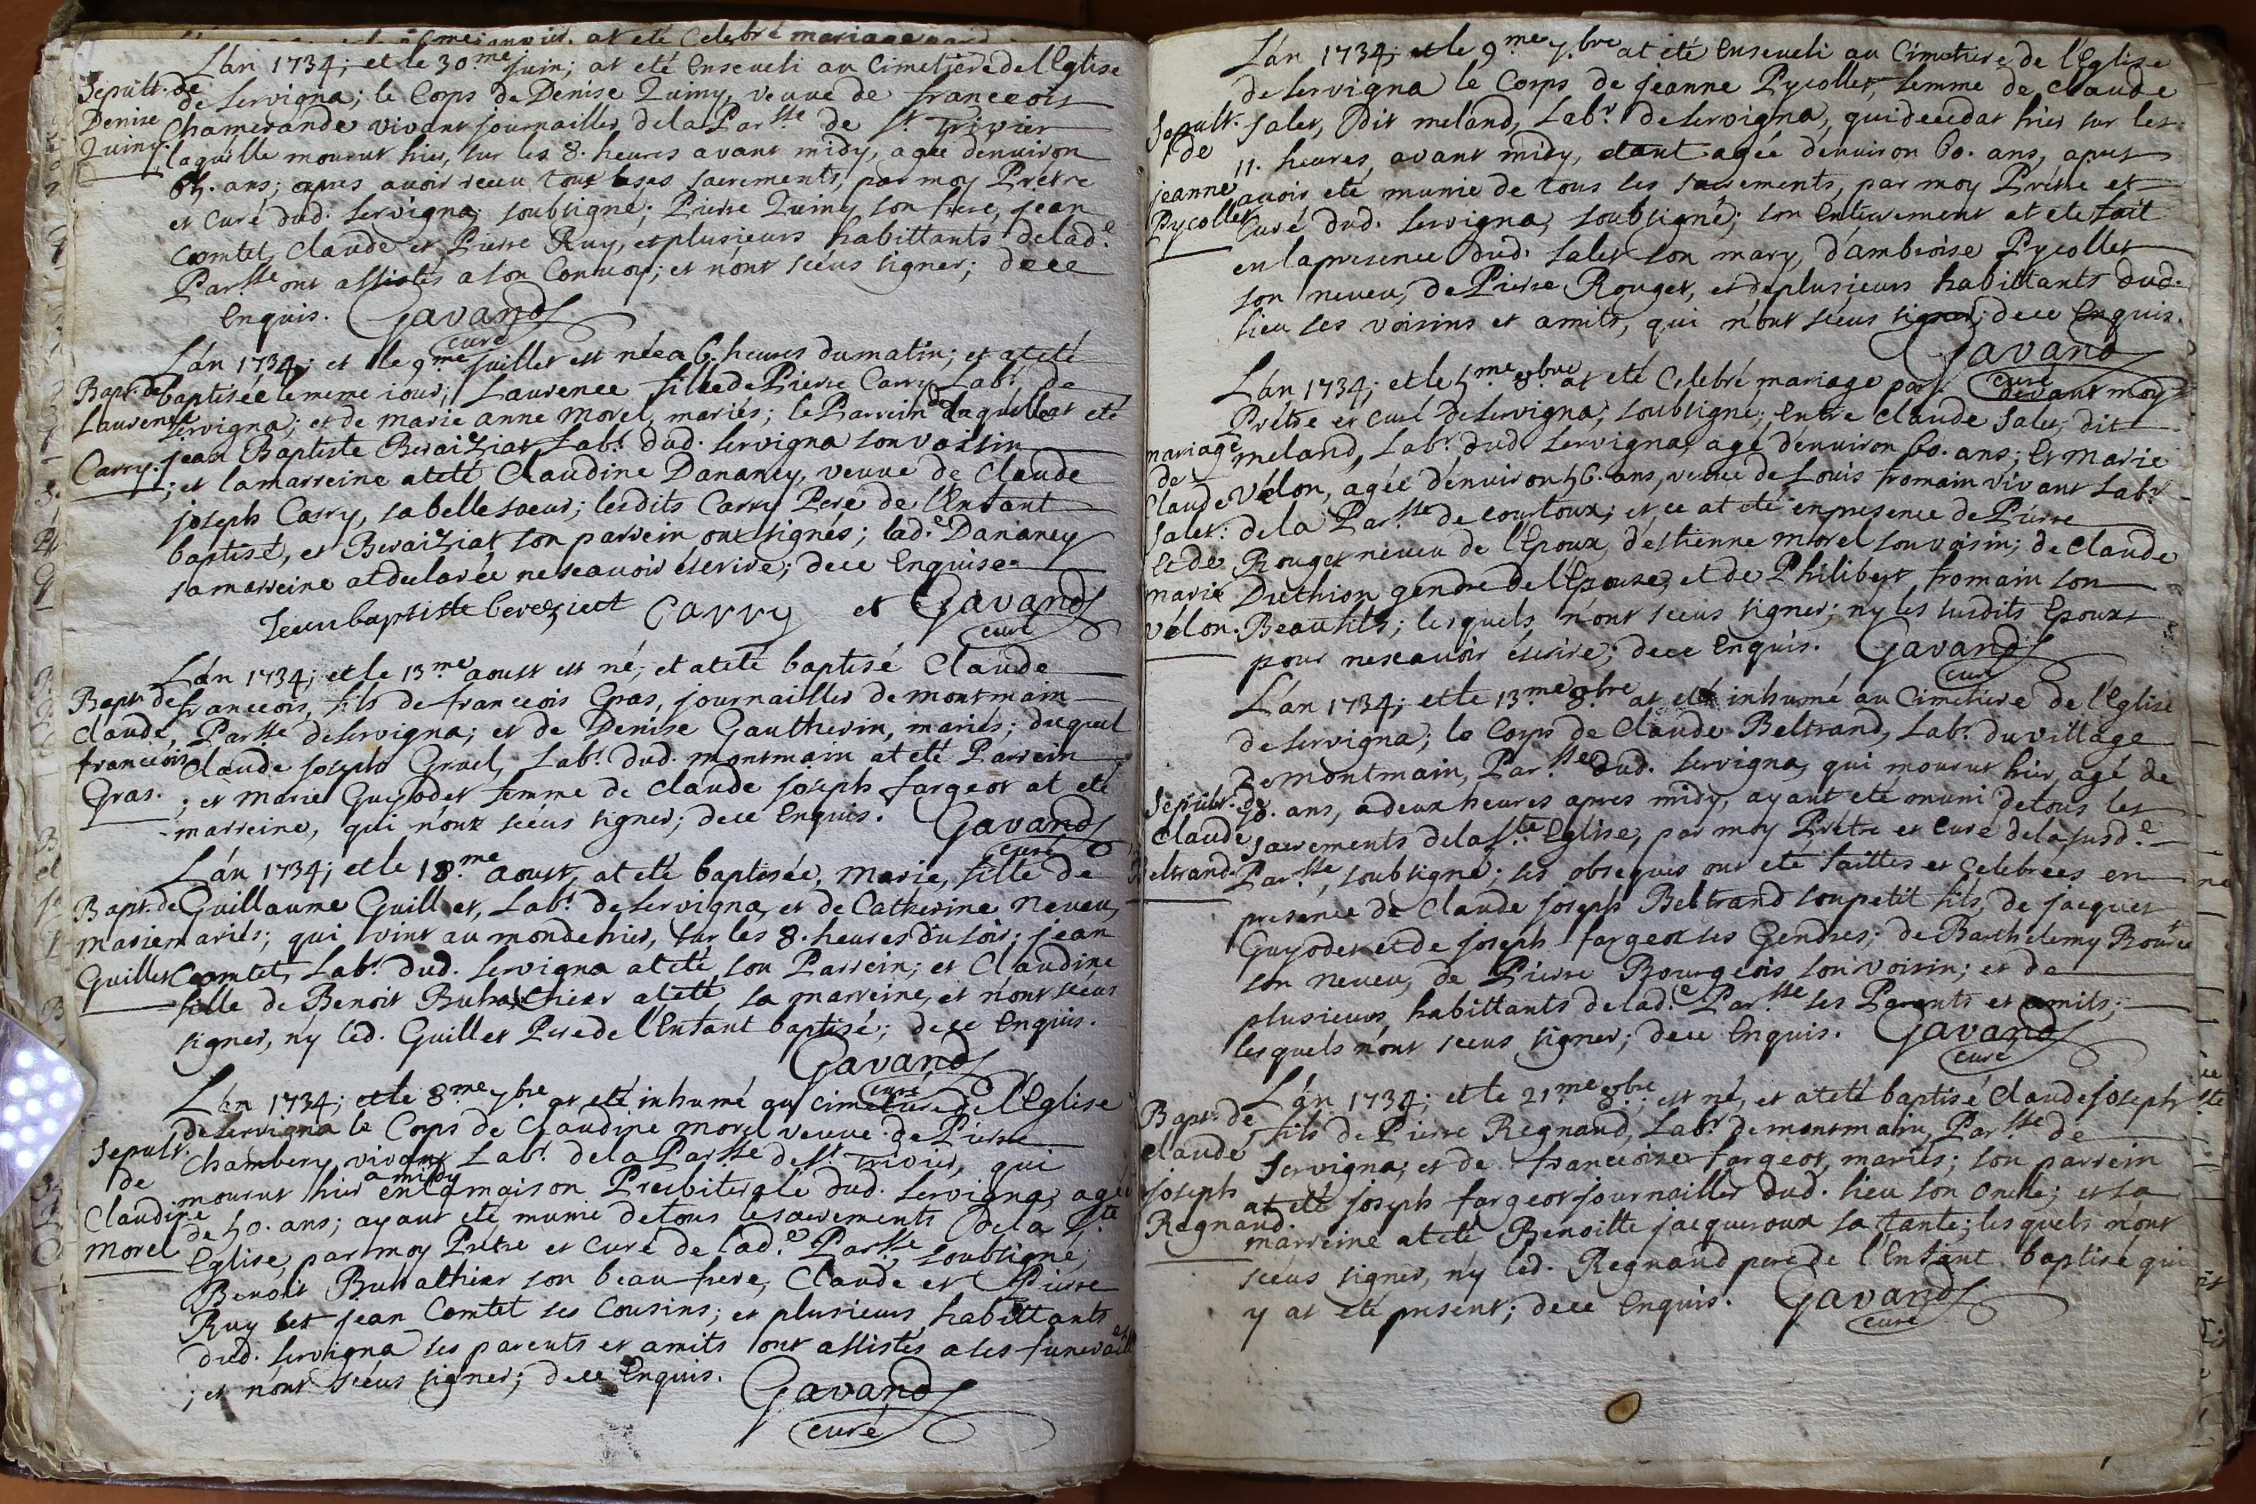 Lán 1734; et le 30.me juin; at eté Enseveli au Cimetiere de l'Eglise
Sepult. de
Denise
Quiny.
de Servigna; le Corps de Denise Quiny, veuve de francois
Chamerande vivant journaillier de la Par.sse de St Trivier
laquelle mourut hier, sur les 8. heures avant midy, agée denviron
65. ans; apres avoir receu tous ses sacrements, par moy Prétre
et curé dud. Servigna; soubsigné; Pierre Quiny son frere, jean
Comtet, Claude et Pierre Ruy, et plusieurs habittants de lad.e
Par.sse ont assistés a son Convoy; et n'ont sceus signer; de ce
Enquis. Gavand
curé
Lán 1734; et le 9.me juillet est née a 6. heures du matin; et at eté
Bapt. de
Laurence
Carry.
baptisée le meme jour; Laurence fille de Pierre Carry Lab.r de
Servigna; et de marie anne morel, mariés; le Parrein de laquelle at eté
jean Baptiste Beraiziat Lab.r dud. Servigna son voisin
; et la marreine at eté Claudine Dananey, veuve de Claude
joseph Carry, sa belle soeur; lesdits Carry Pere de l'Enfant
baptisé, et Beraiziat son parrein ont signés; lad.e Dananey
sa marreine at declarée ne scavoir écrire; de ce Enquise.
Jean baptiste bereziect Carry et Gavand
curé
Lán 1734; et le 13.me aoust est né, et at eté baptisé Claude
Bapt. de
Claude,
francois
Gras.
francois, fils de francois Gras, journaillier de montmain
Par.sse de Servigna; et de Denise Gautherin, mariés; duquel
Claude joseph Gruel, Lab.r dud. montmain at eté Parrein
; et marie Guyodet femme de Claude joseph fargeot at eté
marreine, qui n'ont sceus signer; de ce Enquis. Gavand
curé
Lán 1734; et le 18.me aoust, at eté baptisée, marie, fille de
Bapt. de
marie
Guillet
Guillaume Guillet, Lab.r de Servigna, et de Catherine neveu,
mariés; qui vint au monde hier, sur les 8. heures du soir; jean
Comtet, Lab.r dud. Servigna at eté son Parrein; et Claudine
fille de Benoit Buhathier at eté sa marreine, et n'ont sceus
signer, n'y led. Guillet Pere de l'Enfant baptisé; de ce Enquis.
Gavand
curé
Lán 1734; et le 8.me 7.bre at eté inhumé au cimetiere de l'Eglise
Sepult.
de
Claudine
morel
de Servigna le Corps de Claudine morel veuve de Pierre
Chambery, vivant Lab.r de la Par.sse de St Trivier, qui
mourut hier a midy en la maison Presbiterale dud. Servigna, agée
de 50. ans; ayant eté munie de tous les sacrements de la S.te
Eglise, par moy Prétre et curé de lad.e Par.sse, soubsigné;
Benoit Buhathier son beau frere, Claude et Pierre
Ruy et jean Comtet ses Cousins; et plusieurs habittants
dud. Servigna ses parents et amits ont assistés a ses funerailles
; et n'ont sceus signer; de ce Enquis.
Gavand
curé
Lán 1734; et le 9.me 7.bre at eté Enseveli au Cimetiere de l'Eglise
Sepult.
de
jeanne
Pycollet
de Servigna le Corps de jeanne Pycollet, femme de claude
Salet, Dit meland, Lab.r de Servigna, qui deceda hier sur les
11. heures, avant midy, etant agée denviron 60. ans, apres
avoir eté munie de tous les sacrements, par moy Prétre et
Curé dud. Servigna, soubsigné; son Enterrement at eté fait
en la presence dud. Salet son mary, d'ambroise Pycollet
son neveu, de Pierre Rouget, et de plusieurs habittants dud.
lieu ses voisins et amits, qui n'ont sceus signer; de ce Enquis.
Gavand
curé
Lán 1734; et le 5.me 8.bre at eté Celebré mariage par devant moy
mariage
de
Claude
Salet.
Et de
marie
vélon.
Prétre et curé de Servigna, soubsigné; Entre claude Salet, dit
meland, Lab.r dud. Servigna, agé denviron 60. ans; Et marie
Vélon, agée denviron 56. ans, veuve de Louis fromain vivant Lab.r
de la Par.sse de courtoux; et ce at eté en presence de Pierre
Rouget neveu de l'Epoux, d'estienne morel son voisin; de claude
Duthion gendre de l'Epouse, et de Philibert fromain son
Beaufils; lesquels n'ont sceus signer; ny les susdits Epoux
pour ne scavoir écrire; de ce Enquis. Gavand
curé
Lán 1734; et le 13.me 8.bre at eté inhumé au Cimetiere de l'Eglise
Sepult. de
Claude
Beltrand
de Servigna; le Corps de Claude Beltrand, Lab.r du village
De montmain, Par.sse dud. Servigna, qui mourut hier, agé de
ans, a deux heures apres midy, ayant eté muni de tous les
sacrements de la S.te Eglise, par moy Prétre et Curé de la susd.e
Par.sse, soubsigné; ses obseques ont eté faittes et Celebrées en
presence de Claude joseph Beltrand son petit fils, de jacques
Guyodet et de joseph fargeot ses Gendres; de Barthelemy
son neveu, de Pierre Bourgeois son voisin; et de
plusieurs habittants de lad.e Par.sse ses Parents et amits;
lesquels n'ont sceus signer; de ce Enquis. Gavand
curé
Lán 1734; et le 21.me 8.bre; est né, et at eté baptisé Claude joseph
Bapt. de
Claude
joseph
Regnand.
fils de Pierre Regnand, Lab.r de montmain, Par.sse de
Servigna; et de francoise fargeot, mariés; son parrein
at eté joseph fargeot journaillier dud. lieu son oncle; et sa
marreine at eté Benoitte jacqueroux sa tante; lesquels n'ont
sceus signer, ny led. Regnand pere de l'Enfant baptisé qui
y at eté present; de ce Enquis. Gavand
curé